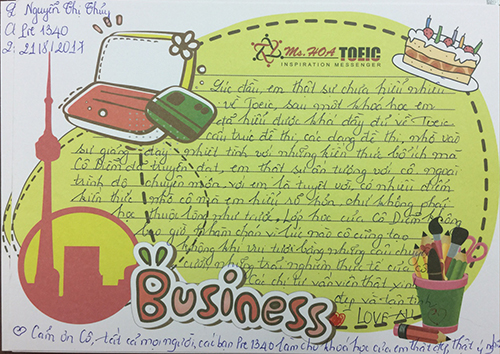 G Nguyễn Thị Thủy
A Pre 1340
2: 21/8/2017
Ms. HOA TOEIC
INSPIRATION MESSENGER
Lúc đầu, em thật sự chưa hiểu nhiều
về Toeic, sau một khoá học em
đã hiểu được khá đầy đủ về Toeic
cấu trúc đề thi, các dạng đề thi, nhờ vào
sự giảng dạy nhiệt tình với những kiến thức bổ ích mà
Cô Diễm đã truyền đạt, em thật sự ấn tượng với cô ngoài
trình độ chuyên môn, với em là tuyệt vời, có nhiều điểm
kiến thức nhờ cô mà em hiểu rõ hơn, chứ không phải
học thuộc lòng như trước. Lớp học của Cô Diễm không
bao giờ nhàm chán vì lúc nào cô cũng tạo
không khí vui tươi bằng những câu chuyện
cười, những trải nghiệm thực tế của cô
Các chị tư vấn viên thật xinh
đẹp và tận tình
LOVE ALL
Business
Cảm ơn Cô, tất cả mọi người, các bạn Pre 1340 làm cho khoá học của em thật đẹp, thật ý nghĩa